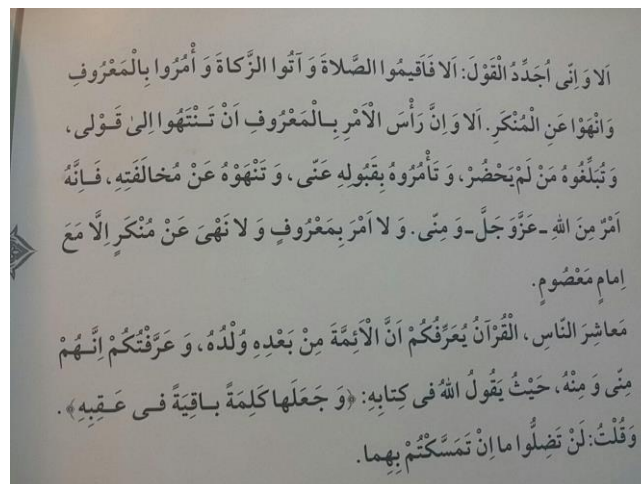 اَلا وَ اِنّى اُجَدِّدُ الْقَوْلَ: اَلا فَاَقيمُوا الصَّلاةَ وَ آتُوا الزَّكاةَ وَ أْمُرُوا بِالْمَعْرُوفِ
وَانْهَوْا عَنِ الْمُنْكَرِ. اَلا وَ اِنَّ رَأْسَ الْاَمْرِ بِـالْمَعْرُوفِ اَنْ تَـنْتَهُوا اِلىٰ قَـوْلى،
وَ تُبَلِّغُوهُ مَنْ لَمْ يَحْضُرْ، وَ تَأْمُرُوهُ بِقَبُولِهِ عَنّى، وَ تَنْهَوْهُ عَنْ مُخالَفَتِهِ، فَـاِنَّهُ
اَمْرٌ مِنَ اللهِ ـ عَزَّ وَ جَلَّ ـ وَ مِنّى. وَ لا اَمْرَ بِمَعْروُفٍ وَ لا نَهْىَ عَنْ مُنْكَرٍ اِلّا مَعَ
اِمامٍ مَعْصُومٍ.
مَعاشِرَ النّاسِ، الْقُرْآنُ يُعَرِّفُكُمْ اَنَّ الْاَئِمَّةَ مِنْ بَعْدِهِ وُلْدُهُ، وَ عَرَّفْتُكُمْ اِنَّـهُمْ
مِنّى وَ مِنْهُ، حَيْثُ يَقُولُ اللهُ فى كِتابِهِ: ﴿وَ جَعَلَها كَلِمَةً بـاقِيَةً فـى عَـقِبِهِ﴾.
وَ قُلْتُ: لَنْ تَضِلُّوا ما اِنْ تَمَسَّكْتُمْ بِهِما.